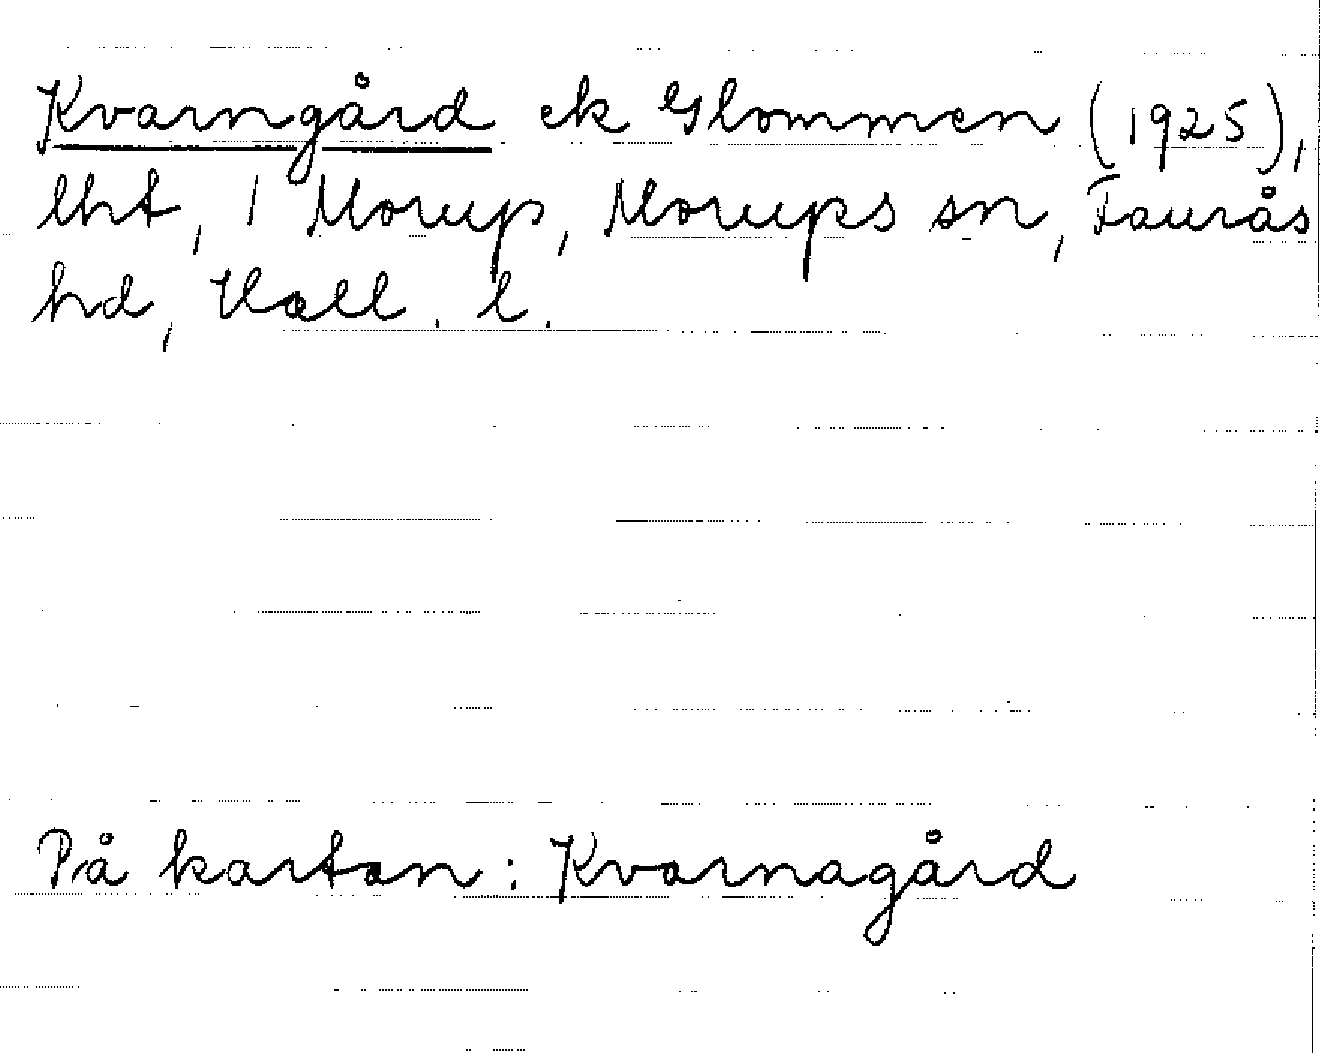 Kvarngård ek Glommen (1925),
lht, 1 Morup, Morups sn, Faurås
hd, Hall. l.
På kartan: Kvarnagård